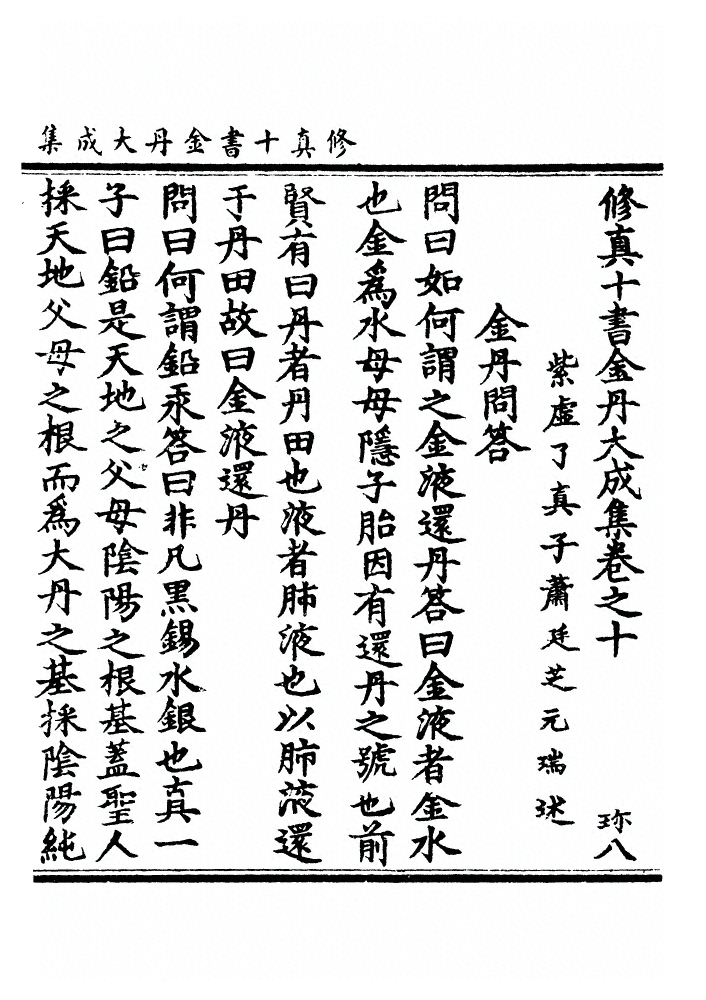 修真十書金丹大成集
修真十書金丹大成集卷之十　珎八
紫虛了真子蕭廷芝元瑞述
金丹問答
問曰如何謂之金液還丹答曰金液者金水
也金爲水母母隱子胎因有還丹之號也前
賢有曰丹者丹田也液者肺液也以肺液還
于丹田故曰金液還丹
問曰何謂鉛汞答曰非凡黑錫水銀也真一
子曰鉛是天地之父母陰陽之根基蓋聖人
採天地父母之根而爲大丹之基採陰陽純